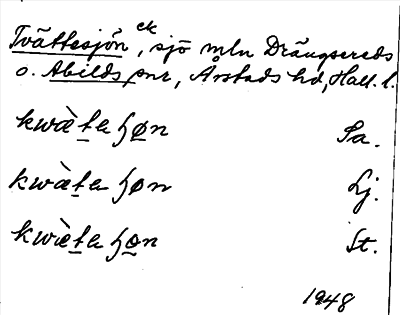 Tvättesjön ck, sjö mln Drängsereds
o. Abilds snr, Årstads hd, Hall. l.
kwæ̀teʃøn Sa.
kwæ̀teʃøn Lj.
kwæ̀teʃøn St.
1948